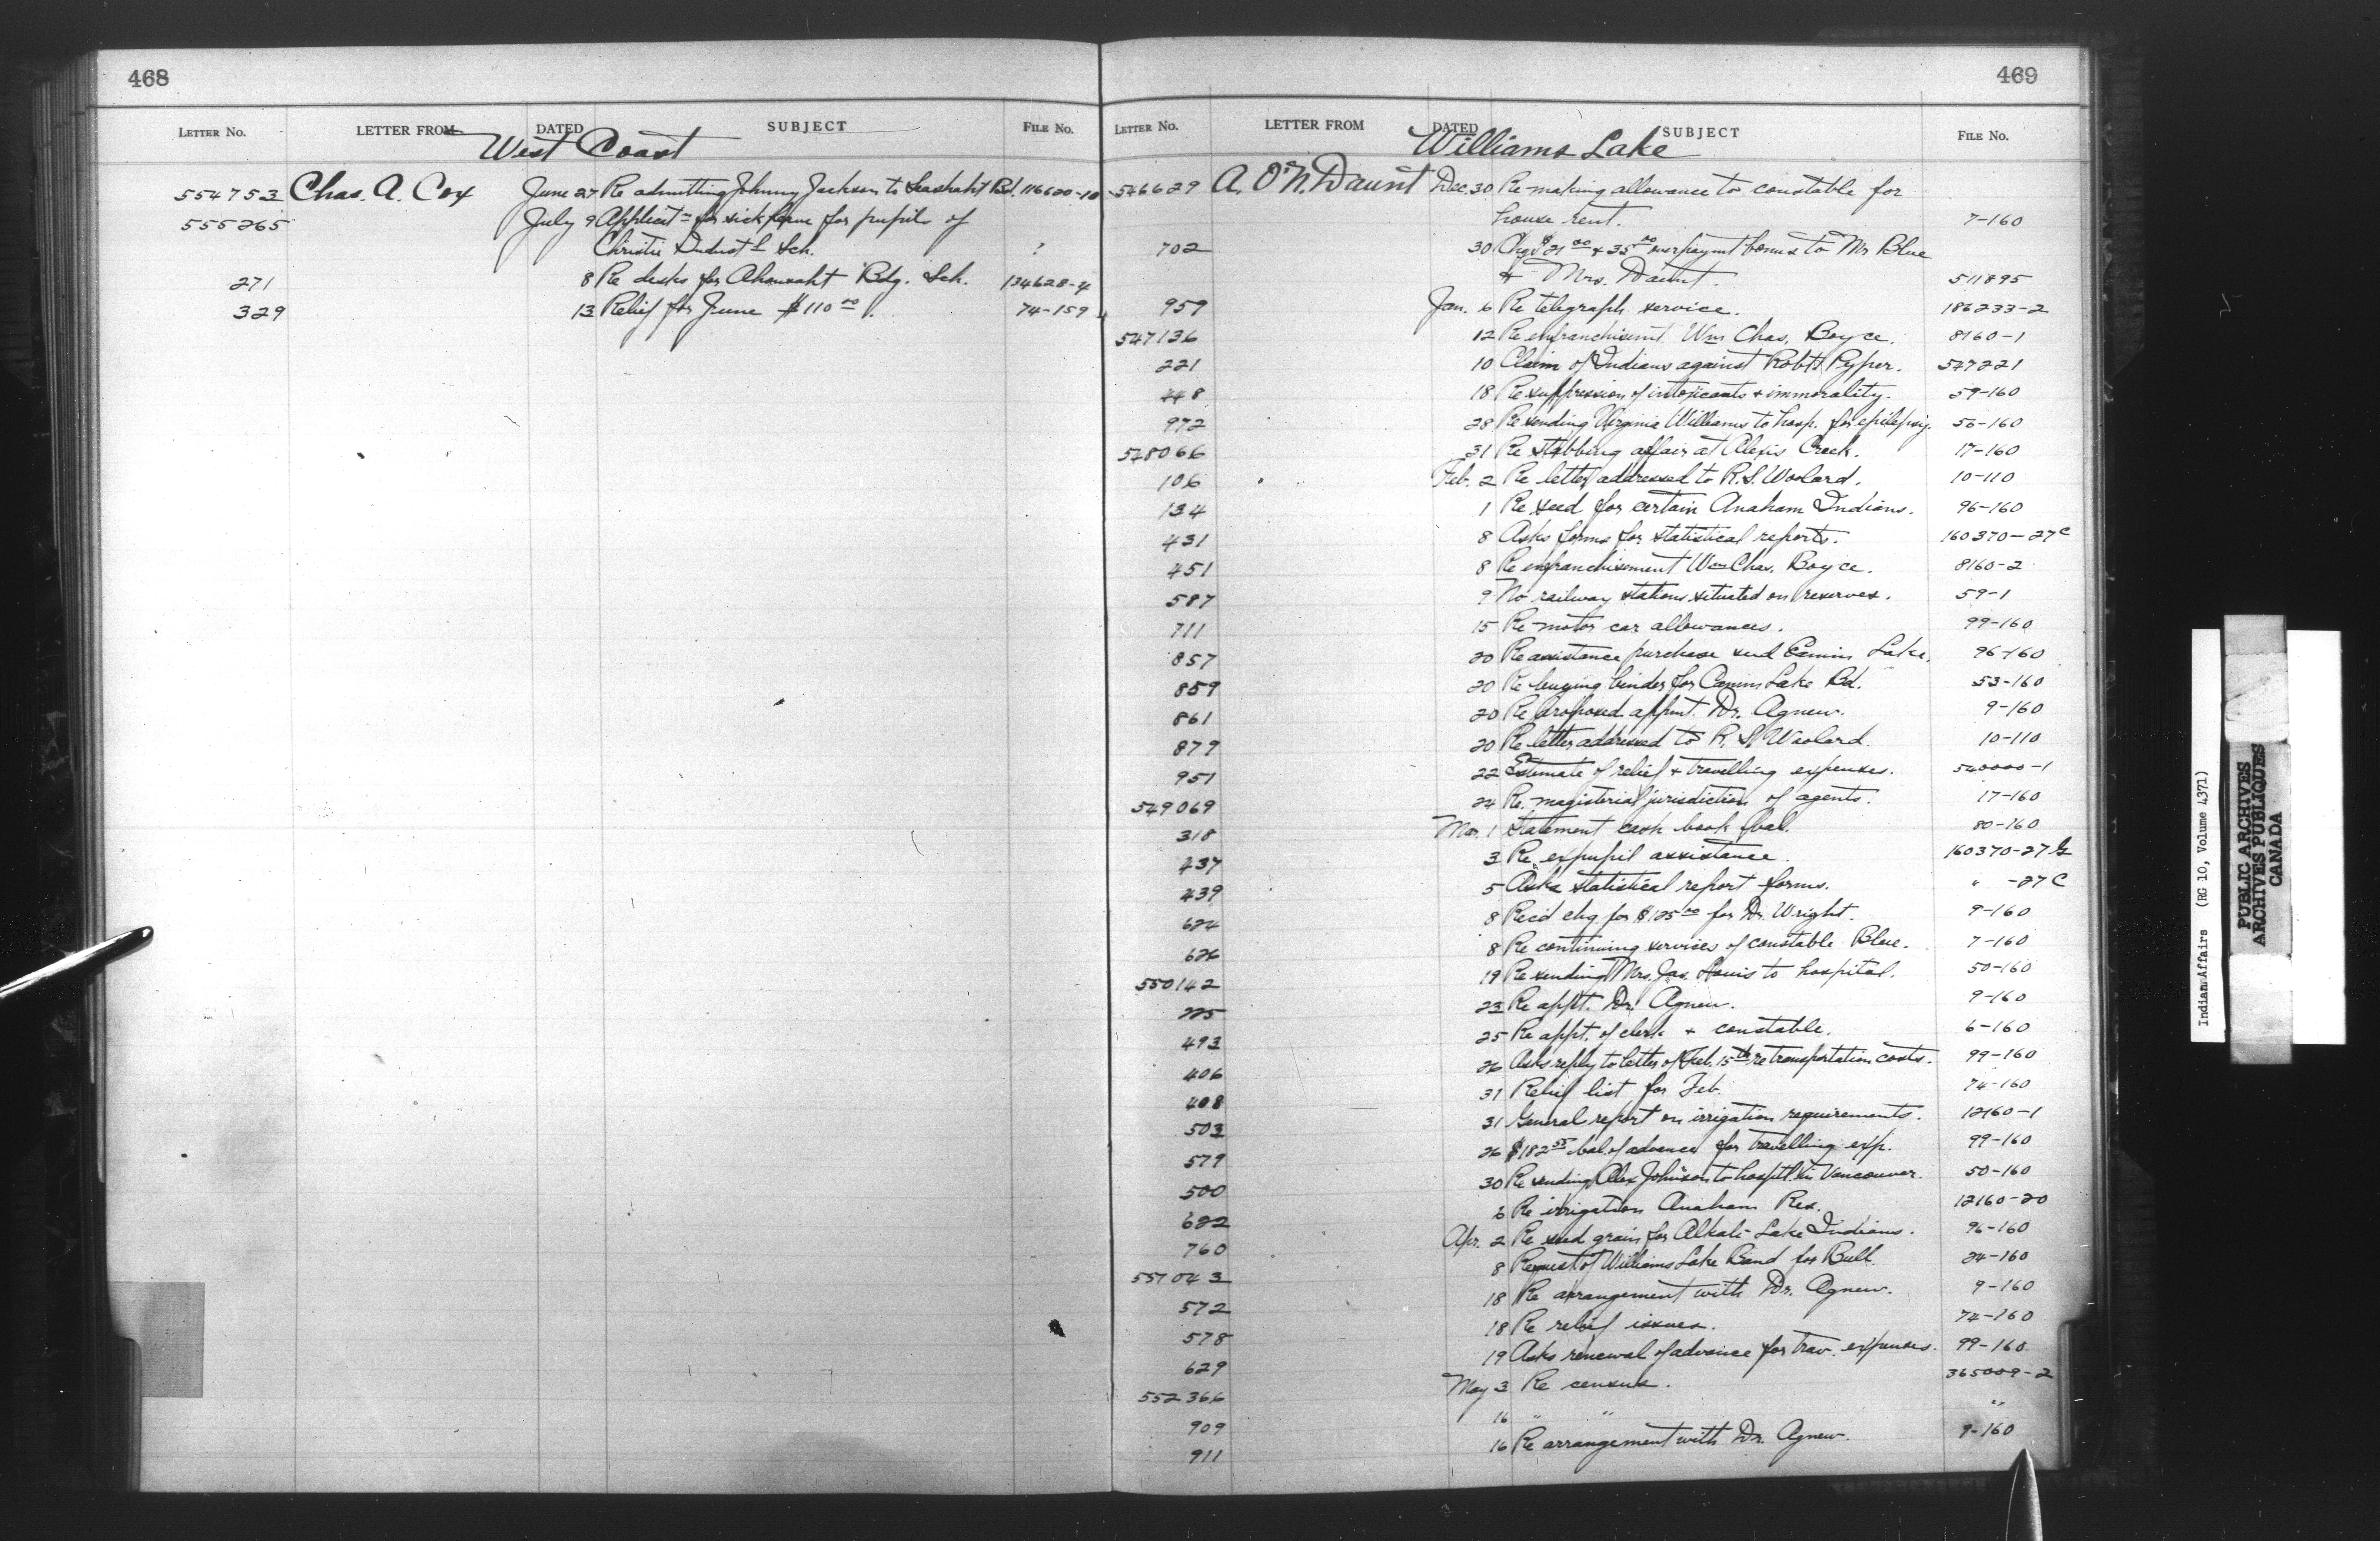 468
LETTER NO. LETTER FROM DATED SUBJECT FILE NO.
West Coast
554753 Chas. A. Cox June 27 Re admitting Johnny Jackson to Seashaht Bd. 116620-10
555265 July 9 Applicatn for sick leave for pupils of
Christie Industl Sch. ?
271 8 Re desks for Ahousaht Bdg. Sch. 134628-4
329 13 Relief for June $110 00. 74-159
469
LETTER NO. LETTER FROM DATED SUBJECT FILE NO.
Williams Lake
546629 A. O'N. Daunt Dec. 30 Re making allowance to constable for
house rent. 7-160
702 30 Chqs $21 00 & 35 00 overpaymt bonus to Mr Blue
& Mrs. Daunt. 511895
959 Jan. 6 Re telegraph service. 186233-2
547136 12 Re enfranchisemt. Wm Chas. Boyce. 8160-1
221 10 Claim of Indians against Robt Pyper. 547221
448 18 Re suppression of intoxicants & immorality. 59-160
972 28 Re sending Virginia Williams to hosp. for epilepsy. 56-160
548066 31 Re stabbing affair at Alexis Creek. 17-160
106 Feb. 2 Re letter addressed to R.S. Woolard. 10-110
134 1 Re seed for certain Anaham Indians. 96-160
431 8 Asks forms for statistical reports. 160370-27c
451 8 Re enfranchisement Wm Chas. Boyce. 8160-2
587 9 No railway stations situated on reserves. 59-1
711 15 Re motor car allowances. 99-160
857 20 Re assistance purchase seed Canim Lake. 96-160
859 20 Re buying binder for Canim Lake Bd. 53-160
861 20 Re proposed appmt. Dr. Agnew. 9-160
879 20 Re letter addressed to R. S. Woolard. 10-110
951 22 Estimate of relief & travelling expenses. 540000-1
549069 24 Re. magisterial jurisdiction of agents. 17-160
318 Mar. 1 Statement cash book bal. 80-160
437 3 Re expupil assistance. 160370-27
439 5 Asks statistical report forms. " -27C
624 8 Recd chq for $125 00 for Dr. Wright. 9-160
626 8 Re continuing services of constable Blue. 7-160
550142 19 Re sending Mrs. Jas. Louis to hospital. 50-160
225 23 Re appt. Dr. Agnew. 9-160
493 25 Re appt. of clerk & constable. 6-160
406 26 Asks reply to letter of Feb. 15th re transportation costs. 99-160
408 31 Relief list for Feb. 74-160
503 31 General report on irrigation requirements. 12160-1
579 26 $182 55 bal. of advance for travelling exp. 99-160
500 30 Re sending Alex Johnson to hospitl. in Vancouver. 50-160
622 6 Re irrigation Anaham Res. 12160-20
760 Apr. 2 Re seed grain for Alkali Lake Indians. 96-160
551043 8 Request of Williams Lake Band for Bull. 24-160
572 18 Re arrangement with Dr. Agnew. 9-160
578 18 Re relief issues. 74-160
629 19 Asks renewal of advance for trav. expenses. 99-160
552366 May 3 Re census. 365009-2
909 16 " " "
911 16 Re arrangement with Dr. Agnew. 9-160
Indian Affairs (RG 10, Volume 4371)
PUBLIC ARCHIVES
ARCHIVES PUBLIQUES
CANADA